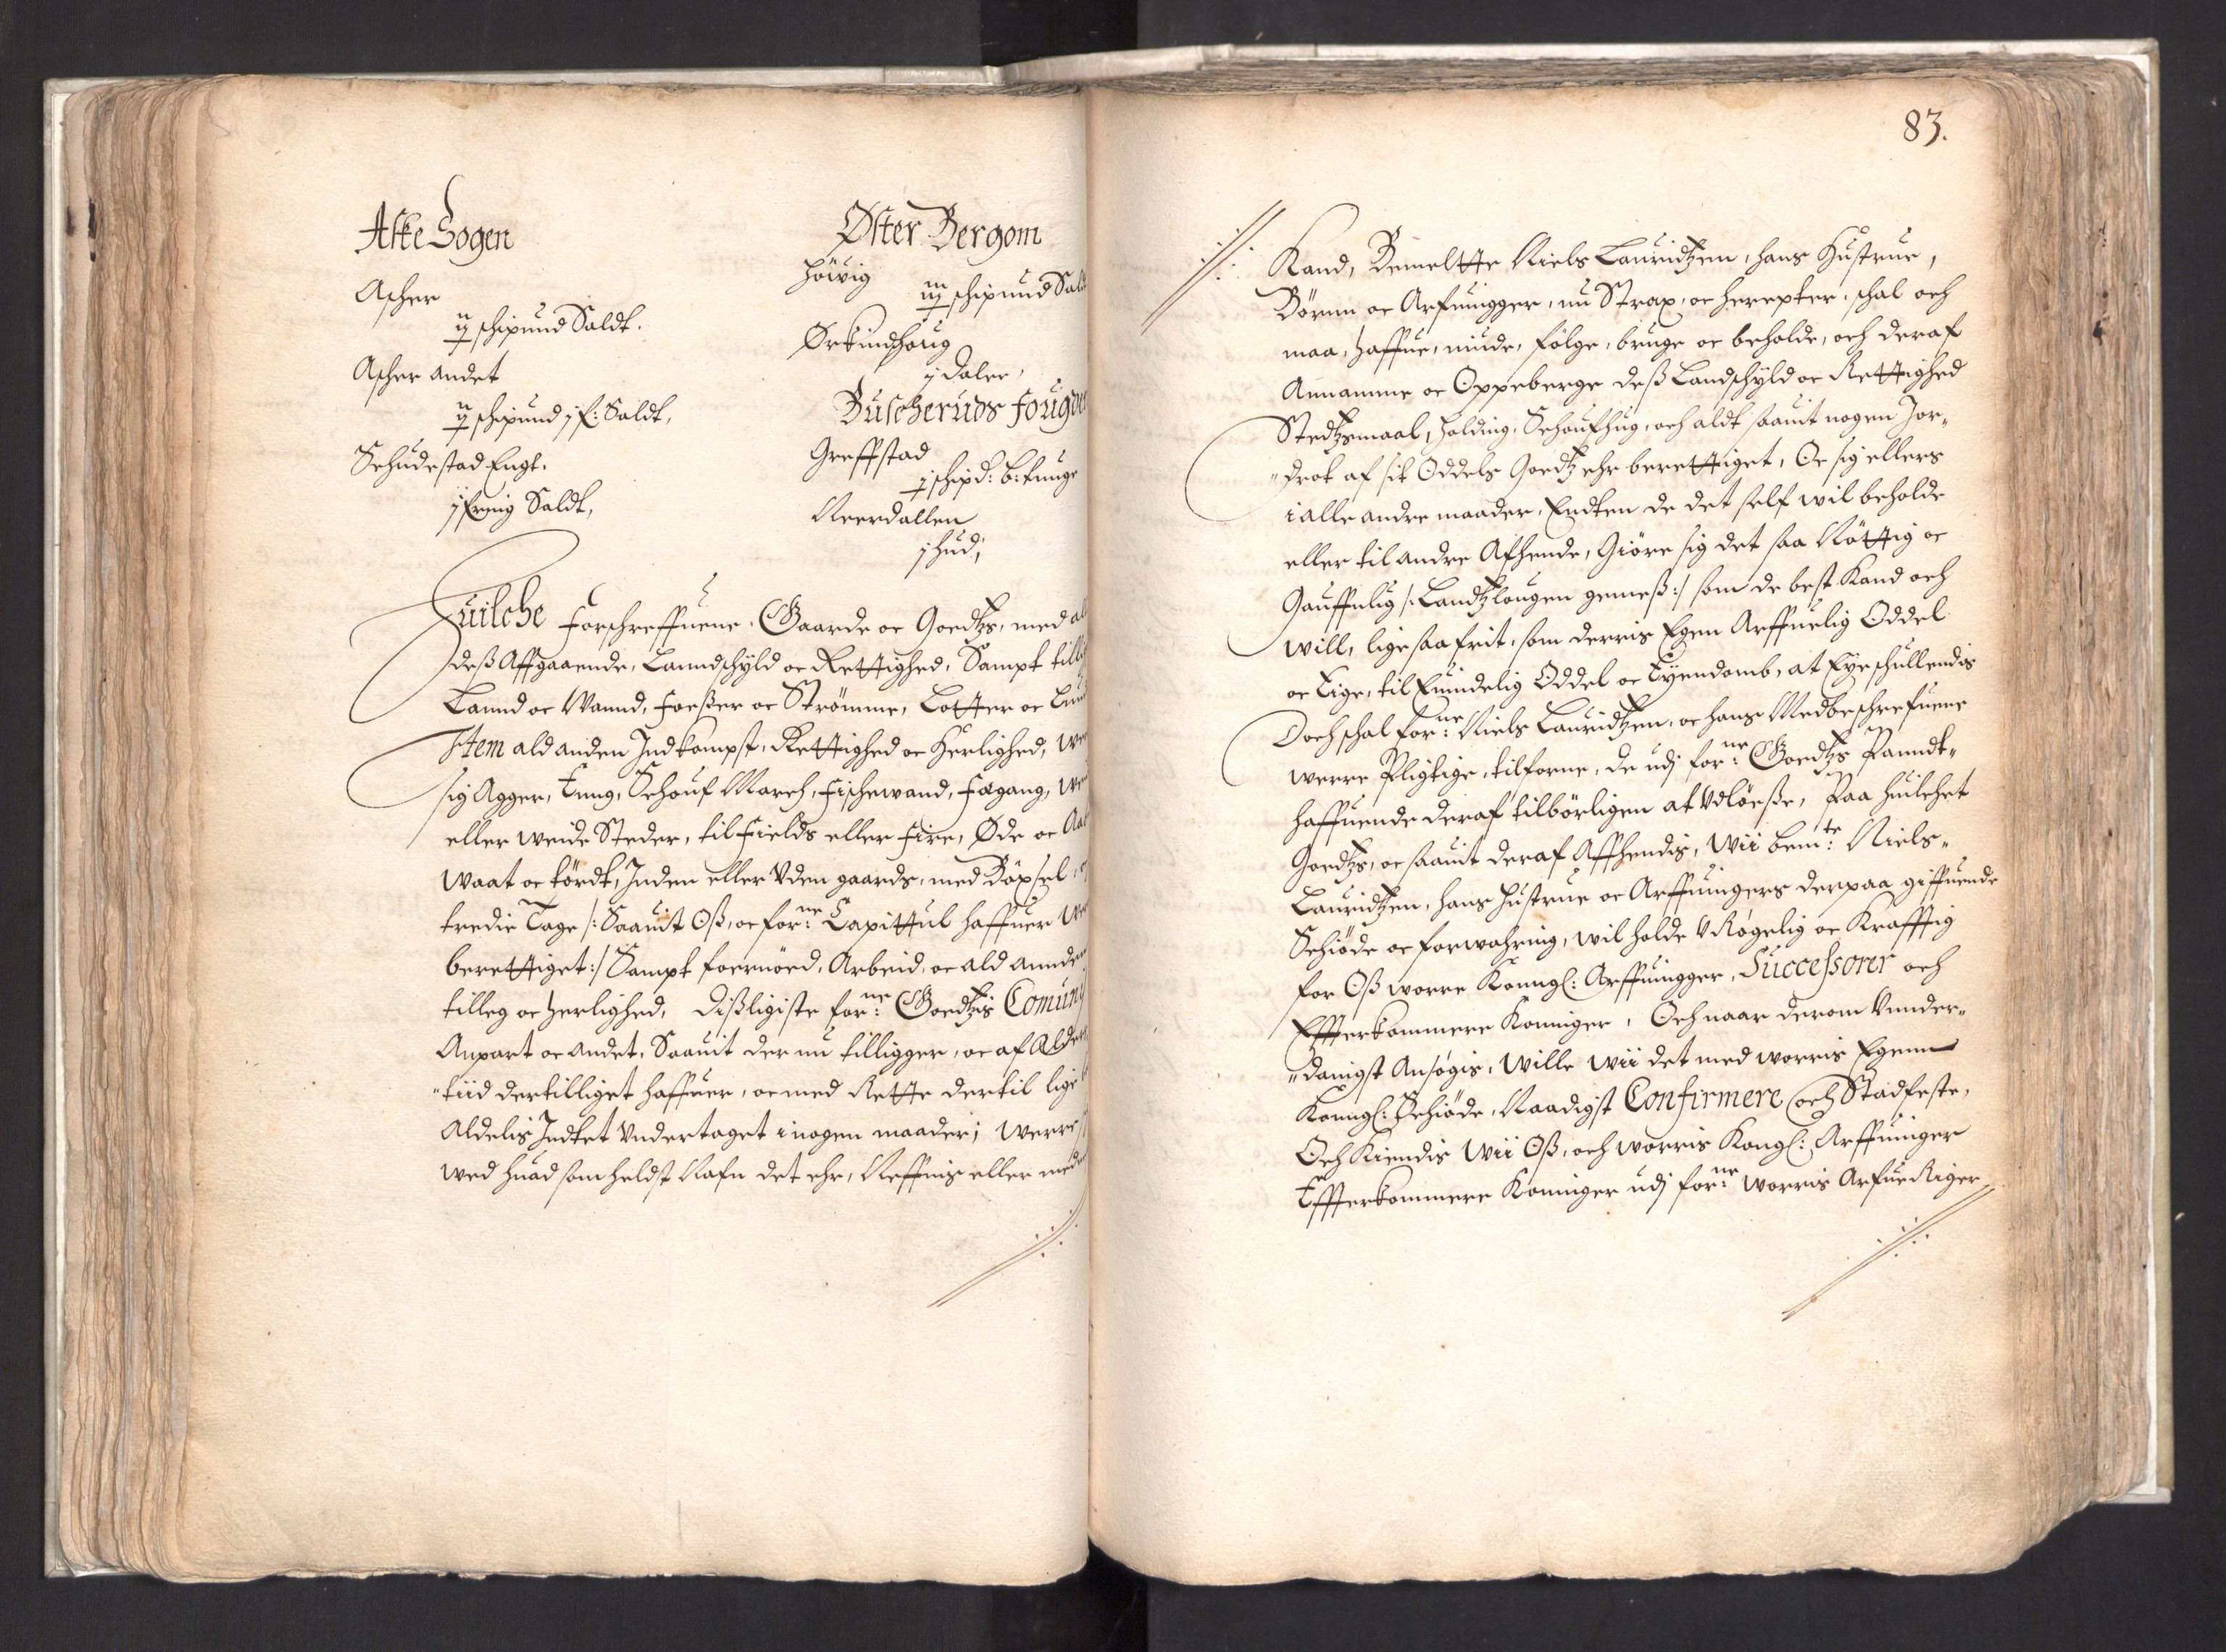 Aske Sogen
Ascher
ij schipund Saldt.
Ascher andet
ij schipund j f: Saldt,
Schudestad Engt.
j fering Saldt,
Øster Bergom
Höwig
iij schipund Sal
Ørkindhoug
ij daler,
Buscheruds fougde
Greffstad
j schipd: b: tunge
Neerdallen
j hud;
Huilche forschreffuene Gaarde oc Goedtzs, med al
deß Affgaaende, Lanndschyld oc Rettighed, Sampt till
Lannd oc Wannd, foeßer oc Strömme, Lotter oc Lun
Item ald anden Indkompst, Rettighed oc Herlighed, Wer
sig Agger, Enng, Schouf March, fischewand, fægang, We
eller weide Steder, til fields eller fire, Øde oc
Waat oc tördt, Inden eller Vden gaards, med Böxsel,
tredie Tage /: Saauit Oß, oc for:ne Capittul haffuer
berettiget :/ Sampt foernöed, Arbeid, oc ald annden
tilleg oc herlighed, dißligiste for:ne Goedtzis Comuni
Anpart oc andet, Saauit der nu tilligger, oc af Alders
"tiid dertilliget haffuer, oc med Rette dertil lige
Aldelis Indtet Vndertaget i nogen maader; Werre
wed huad som heldst Nafn det ehr, Neffnis eller med
83.
Kand, Bemeltte Niels Lauridtzen, hans Hustrue,
Börnn oc Arfuingger, nu Strax, oc herepter, schal och
maa, haffue, niude, fölge, bruge oc beholde, och deraf
Annamme oc Oppeberge deß Landschyld oc Rettighed
Stedtzmaal, holding, Schoufhug, och aldt saauit nogen Jor"
"drot af sit Oddels Goedtz ehr berettiget, Oc sig ellers
i alle andre maader, Endten de det self wil beholde
eller til andre Afhende, Giöre sig det saa Nöttig oc
Gauffnlig /: Landtzlougen gemeß :/ som de best Kand och
will, lige saa frit, som derris Egen Arffuelig Oddel
oc Eige, til Euindelig Oddel oc Eyendomb, at Eyeschullendis
Doch schal for:ne Niels Lauridtzen, oc hans Medbeschrefuene
werre Pligtige, tilforne, de udj for:ne Goedtzs Panndt"
haffuende deraf tilbörligen at Vdlöeße, Paa huilchet
Goedtzs, oc saauit deraf Affhendis, Wii bem:te Niels"
Lauridtzen, hans Hustrue oc Arffuingers derpaa giffuende
Schiöde oc forwahring, wil holde VRøgelig oc Krafftig
for Oß worre Konngl: Arffuingger, Successorer och
Effterkommere Konniger, Och naar derom Vnnder"
"danigst Ansøgis, Wille Wii det med worris Egenn
Konngl: Schiöde, Naadigst Confirmere och Stadfeste,
Och Kiendis Wii Oß, och worris Kongl: Arffuinger
Effterkommere Konniger udj for:ne Worris ArfueRiger